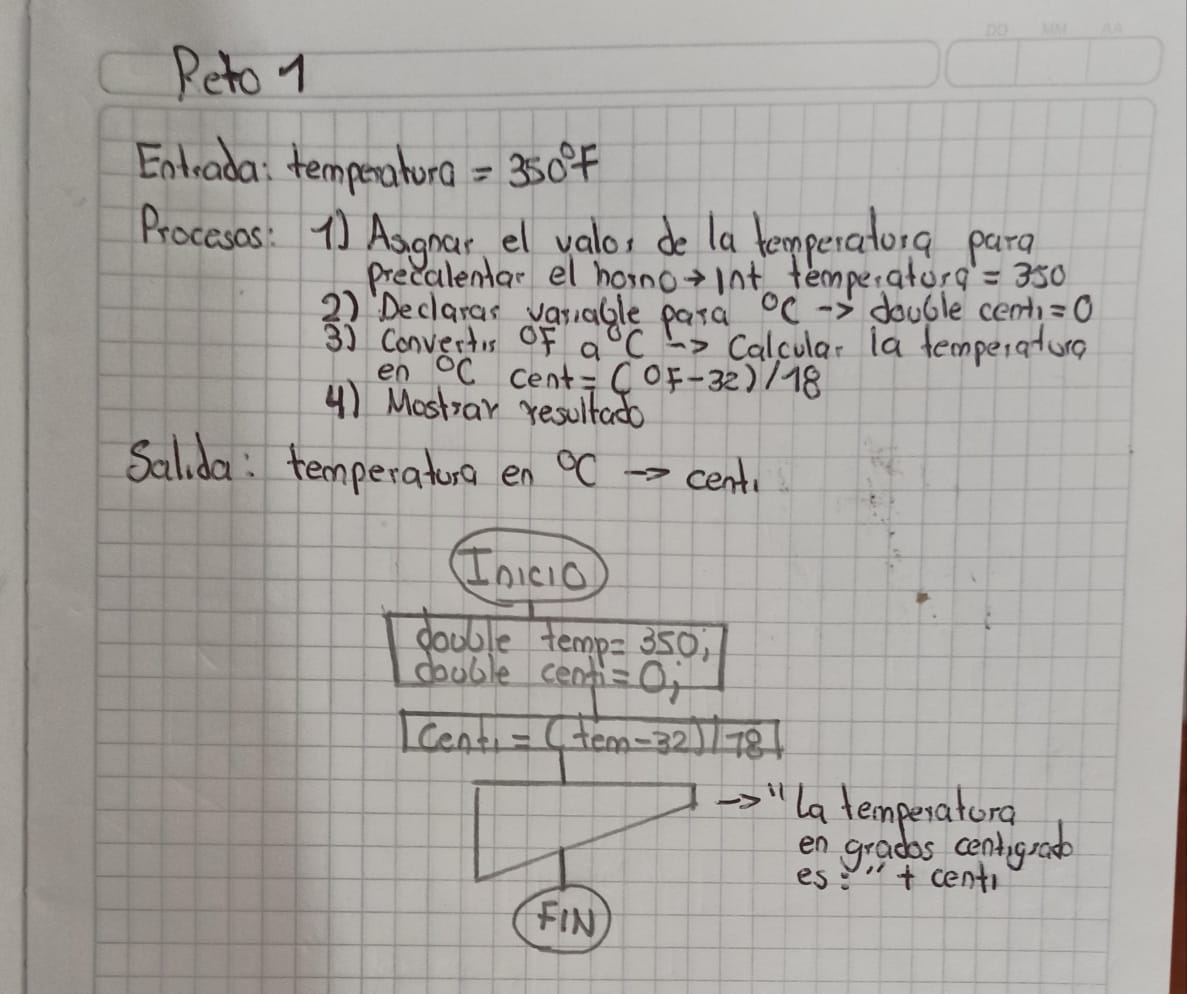 DD MM AA
Reto 1
Entrada: temperatura = 350°F
Procesos: 1) Asignar el valor de la temperatura para
precalentar el horno → Int temperatura = 350
2) Declarar variable para °C -> double centi = 0
3) Convertir °F a °C -> Calcular la temperatura
en °C cent = (°F-32)/18
4) Mostrar resultado
Salida: temperatura en °C -> centi
Inicio
double temp= 350;
double centi = 0;
Centi = (tem-32)/18
-> "La temperatura
en grados centigrado
es: " + centi
FIN